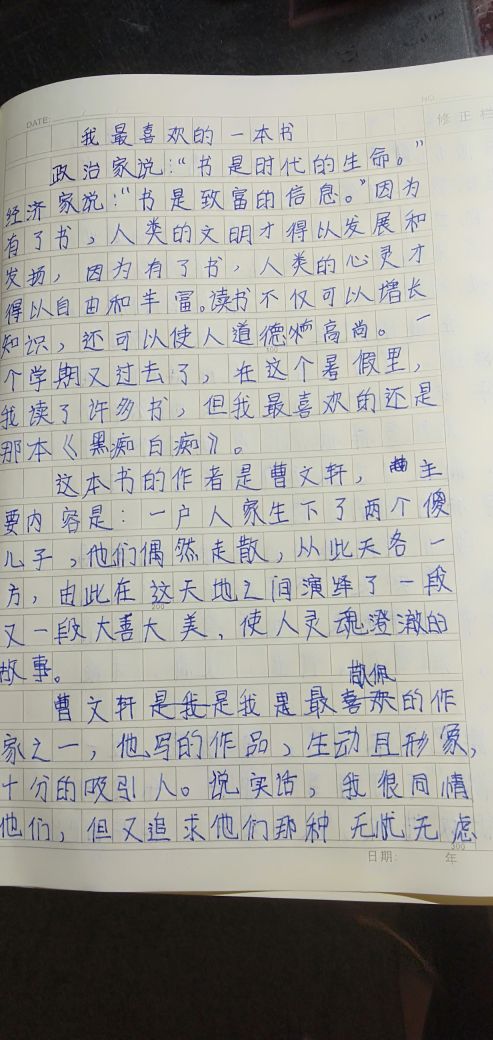 NO.
DATE:
修正栏
我最喜欢的一本书
政治家说：“书是时代的生命。”
经济家说：“书是致富的信息。”因为
有了书，人类的文明才得以发展和
发扬，因为有了书，人类的心灵才
得以自由和丰富。读书不仅可以增长
知识，还可以使人道德高尚。一
个学期又过去了，在这个暑假里，
我读了许多书，但我最喜欢的还是
那本《黑痴白痴》。
这本书的作者是曹文轩，主
要内容是：一户人家生下了两个傻
儿子，他们偶然走散，从此天各一
方，由此在这天地之间演绎了一段
200
又一段大善大美，使人灵魂澄澈的
故事。
敬佩
曹文轩是我是我是最喜欢的作
家之一，他写的作品，生动且形象，
十分的吸引人。说实话，我很同情
他们，但又追求他们那种无忧无虑
300
日期: 年